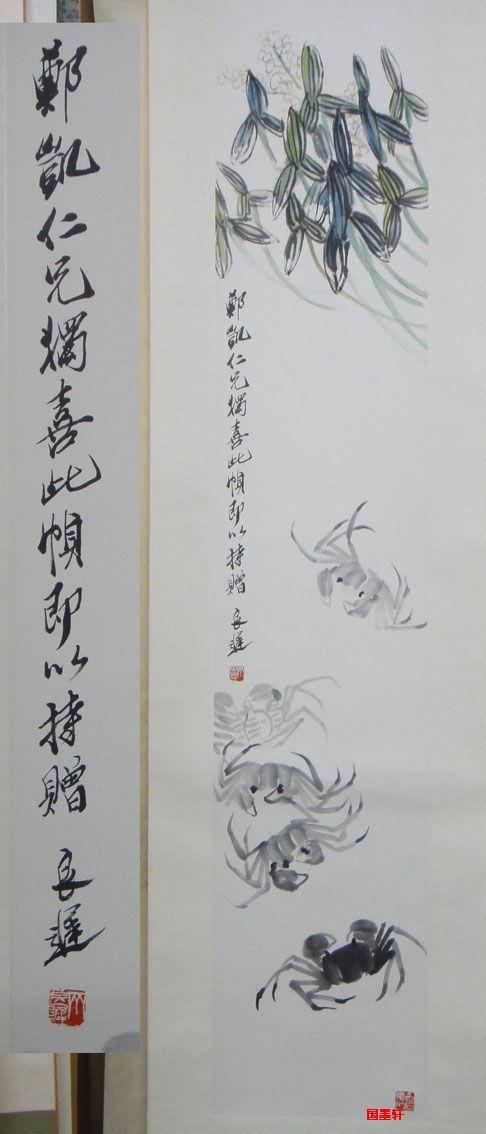 鄭凱仁兄獨喜此幀即以持贈 良遲
鄭凱仁兄獨喜此幀即以持贈 良遲
国墨轩